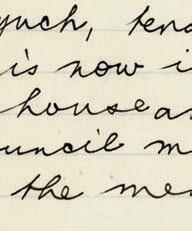 ynch, tend
is now i
house as
ouncil m
the me